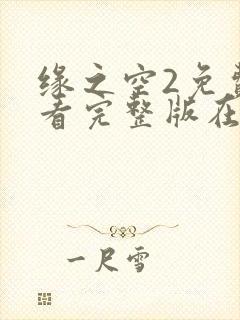 缘之空2免费
看完整版在
一尺雪